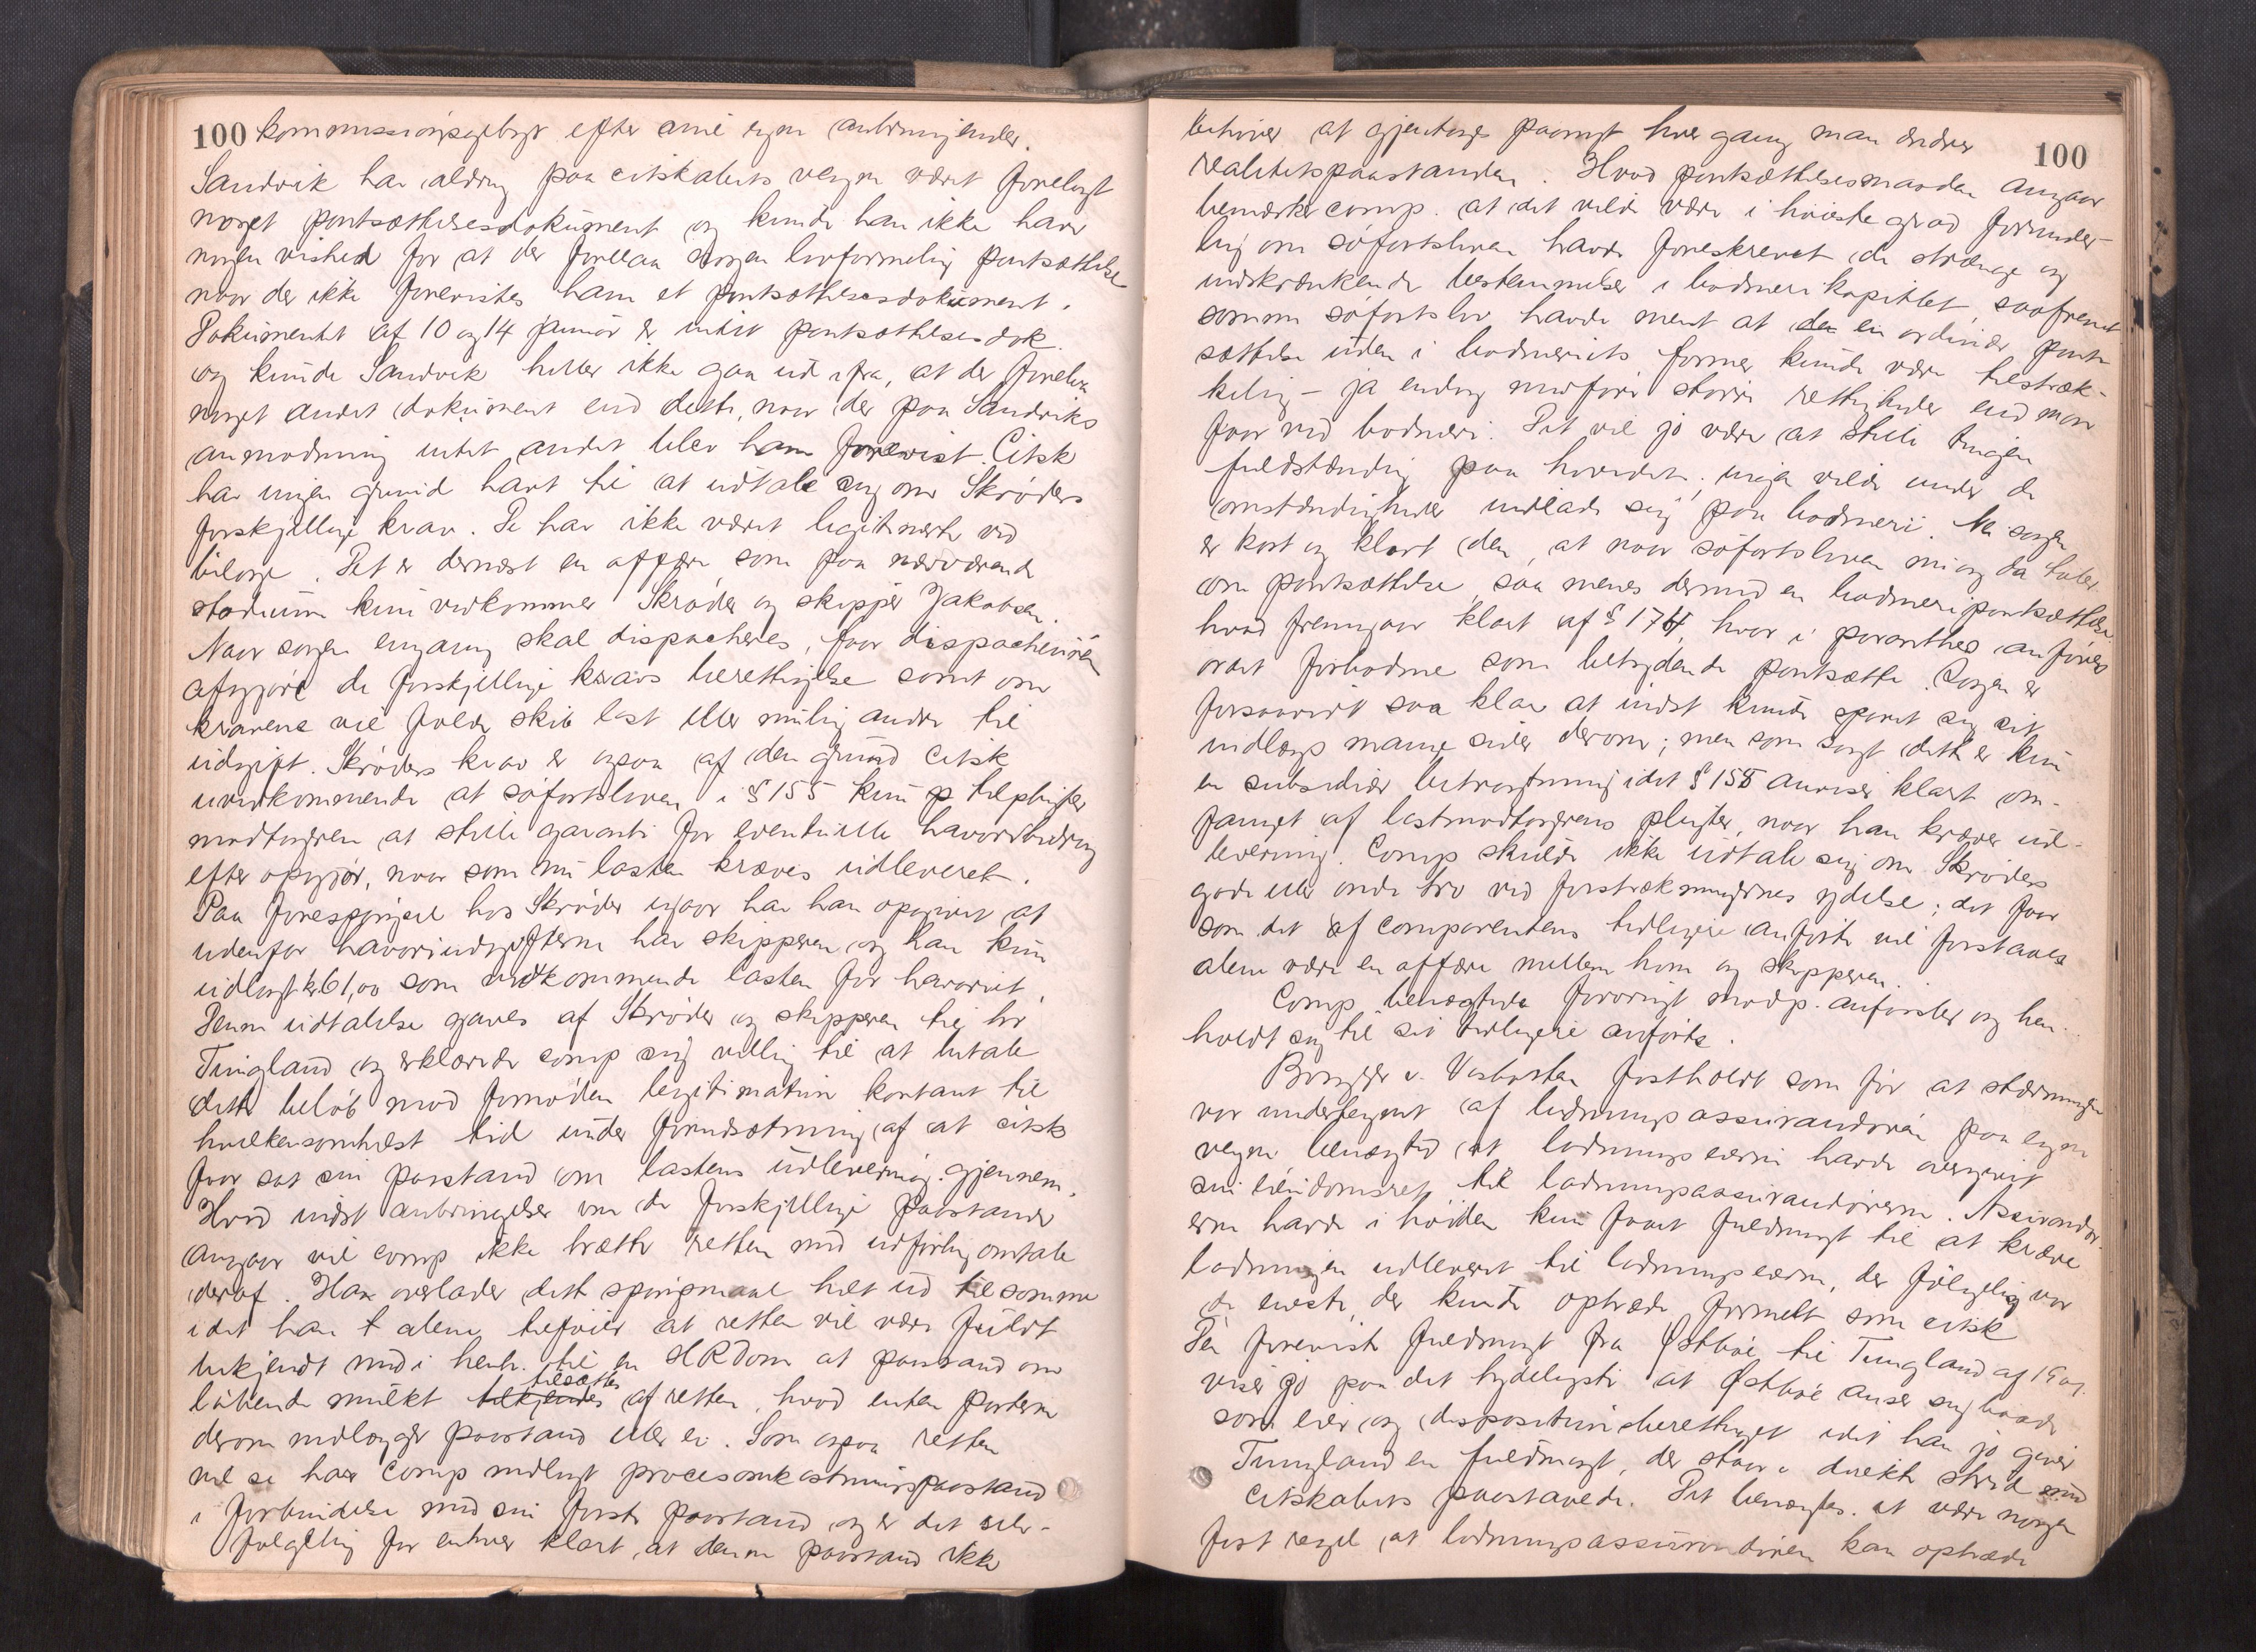 100 kommissionsgebyr efter sine egne anbringender.
Sandvik har aldrig paa citskabets vegne været forelagt
noget pantsættelsesdokument og kunde han ikke have
nogen vished for at der forelaa nogen lovformelig pantsættelse
naar der ikke forevistes ham et pantsættelsesdokument.
Dokumentet af 10 og 14 januar er intet pantsættelsesdok.
og kunde Sandvik heller ikke gaa ud ifra, at der forelaa
noget andet dokument end dette, naar der paa Sandviks
anmodning intet andet blev ham forevist. Citsk
har ingen grund havt til at udtale sig om Skrøders
forskjellige krav. De har ikke været legitimerte ved
bilage. Det er dernæst en affære som paa nærværende
stadium kun vedkommer Skrøder og skipper Jakobsen.
Naar sagen engang skal dispacheres, faar dispachøren
afgjøre de forskjellige kravs berettigelse samt om
kravene vil falde skib last eller mulig andre til
udgift. Skrøders krav er ogsaa af den grund citsk
uvedkommende at søfartsloven i § 155 kun tilpligter
modtageren at stille garanti for eventuelle havaribidrag
efter opgjør, naar som nu lasten kræves udleveret.
Paa forespørgsel hos Skrøder igaar har han opgivet at
udenfor havariudgifterne har skipperen og han kun
udlagt kr 61,00 som vedkommende lasten før havariet.
Denne udtalelse gaves af Skrøder og skipperen til hr
Tungland og erklærede comp sig villig til at betale
dette beløb mod fornøden legitimation kontant til
hvilkensomhelst tid under forudsætning af at citsk
faar sat sin paastand om lastens udlevering gjennem.
Hvad indst anbringelser om de forskjellige paastande
angaar vil comp ikke trætte retten med udførlig omtale
deraf. Han overlader dette spørgsmaal helt ud til samme
idet han alene tilføier at retten vil være fuldt
bekjendt med i henh. til en HRDom at paastand om
løbende mulkt tilsættes af retten, hvad enten parterne
derom nedlægger paastand eller ei. Som ogsaa retten
vil se har comp nedlagt procesomkostningspaastand
i forbindelse med sin første paastand og er det selv-
følgelig for enhver klart at denne paastand ikke
100
behøver at gjentages paanyt hver gang man ændrer
realitetspaastanden. Hvad pantsættelsesmaaden angaar
bemærker comp. at det vilde være i høieste grad forunder-
lig om søfartsloven havde foreskrevet de strænge og
indskrænkende bestemmelser i bodmerikapitlet, saafremt
samme søfartslov havde ment at en ordinær pant-
sættelse uden i bodmeriets former kunde være tilstræk-
kelig – ja endog medføre større rettigheder end man
faar ved bodmeri. Det vil jo være at stille tingen
fuldstændig paa hovedet; ingen vilde under de
omstændigheder indlade sig paa bodmeri. Nei sagen
er kort og klart den, at naar søfartsloven nu og da taler
om pantsættelse, saa menes dermed en bodmeripantsættelse,
hvad fremgaar klart af § 174, hvor i paranthes anføres
ordet forbodme som betydende pantsætte. Sagen er
forsaavidt saa klar at indst kunde sparet sig sit
indlægs mange sider derom; men som sagt dette er kun
en subsidiær betragtning idet § 155 anviser klart om-
fanget af lastmodtagerens pligter, naar han kræver ud-
levering. Comp skulde ikke udtale sig om Skrøders
gode eller onde tro ved forstrækningernes ydelse; det faar
som det af comparentens tidligere anførte vil forstaaes
alene være en affære mellem ham og skipperen.
Comp benægtede forøvrigt modp. anførsler og hen-
holdt sig til sit tidligere anførte.
Borgger v. Vasbotten fastholdt som før at stævningen
var undertegnet af ladningsassurandøren paa egne
vegne benægted at ladningseieren havde overgivet
sin eiendomsret til ladningsassurandørerne. Assurandør-
erne havde i høiden kun faaet fuldmagt til at kræve
ladningen udleveret til ladningseieren, der følgelig var
de eneste, der kunde optræde formelt som citsk
Den foreviste fuldmagt fra Østbøe til Tungland af 19 ds.
viser jo paa det tydeligste at Østbøe anser sig baade
som eier og dispositionsberettiget idet han jo giver
Tungland en fuldmagt, der staar i direkte strid med
citskabets paastande. Det benægtes at være nogen
fast regel at ladningsassurandøren kan optræde